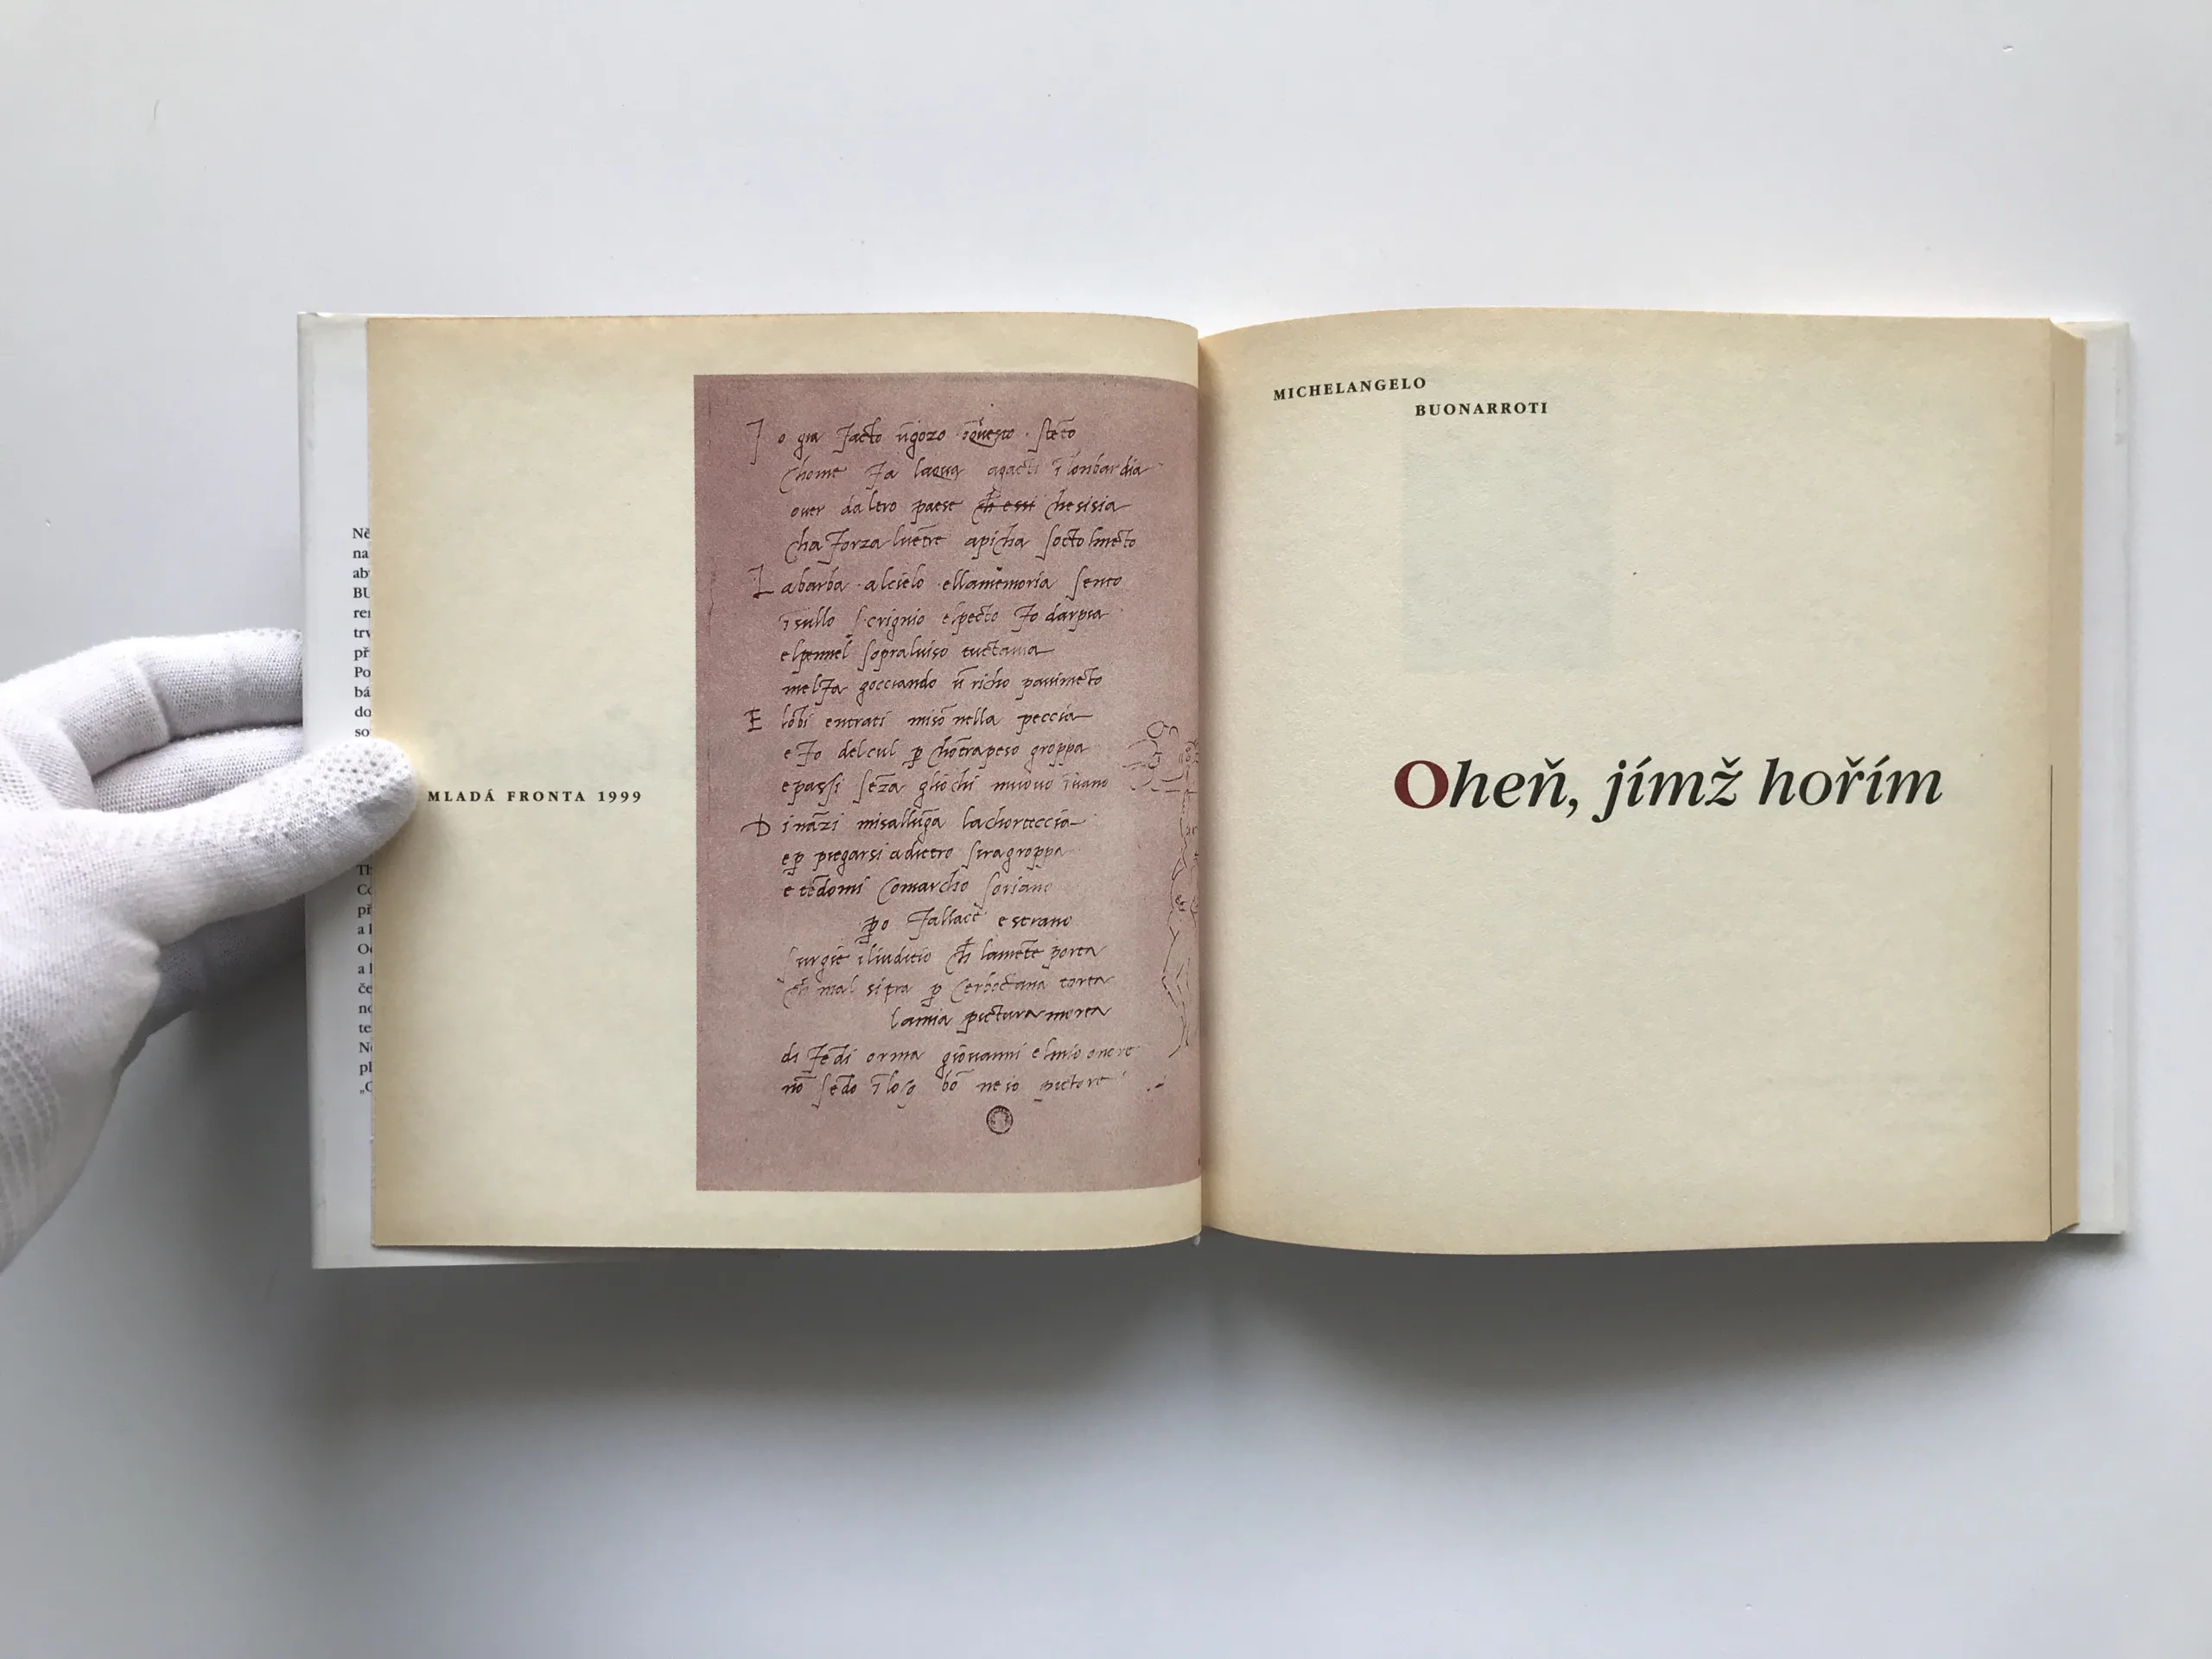 Ně
na
ab
BU
rer
trv
př
Po
bá
do
so
Th
Co
př
a l
Oc
a l
če
no
te
Ne
pl
„C
MLADÁ FRONTA 1999
I o gia facto ūgozo ī questo stēto
chome fa lacqua agacti ī lonbardia
over daltro paese ch essi che sisia
cha forza luētre apicha socto lmēto
L abarba alcielo ellamemoria sento
ī sullo scrignio elpecto fo darpia
elpennel sopraluiso tuctavia
melfa gocciando ū richo pavimēto
E lōbi entrati misō nella peccia
e fo delcul p chōtrapeso groppa
epassi sēza gliochi muovo īvano
D ināzi misallūga lachorteccia
e p piegarsi adietro siragroppa
e tēdomi comarcho soriano
po fallace e strano
surgie iliudicio ch lamēte porta
ch mal sitra p cerboctana torta
lamia pictura morta
di fēdi orma giovanni elmio onore
nō sēdo ī loco bō ne io pictore
MICHELANGELO
BUONARROTI
Oheň, jímž hořím